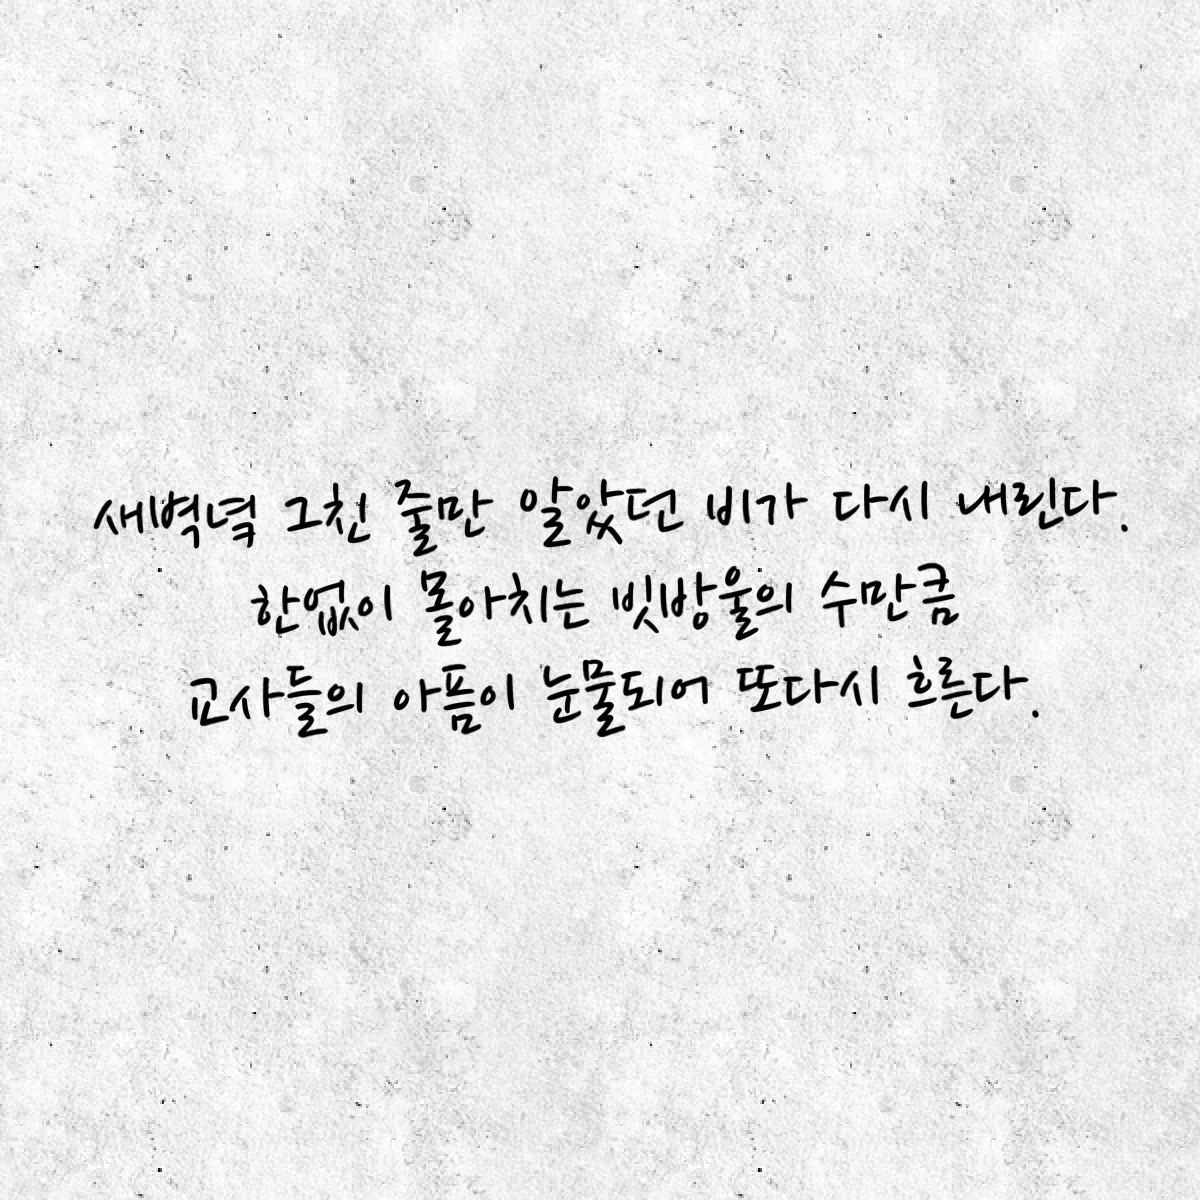 새벽녘 그친 줄만 알았던 비가 다시 내린다.
한없이 몰아치는 빗방울의 수만큼
교사들의 아픔이 눈물되어 또다시 흐른다.